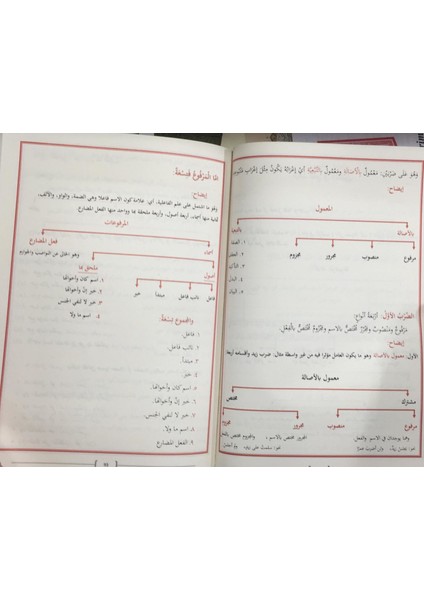 وَهُوَ عَلَى ضَرْبَيْنِ: مَعْمُولٌ بِالْأَصَالَةِ وَمَعْمُولٌ بِالتَّبَعِيَّةِ أَيْ إِعْرَابُهُ يَكُونُ مِثْلَ إِعْرَابِ مَتْبُوعِهِ
إيضاح:
المعمول
بالأصالة
بالتبعية
مرفوع
منصوب
مجرور
مجزوم
١. الصفة
٢. العطف
٣. التأكيد
٤. البدل
٥. البيان
الضَّرْبُ الْأَوَّلُ: أَرْبَعَةُ أَنْوَاعٍ:
مَرْفُوعٌ وَمَنْصُوبٌ وَمَجْرُورٌ مُخْتَصٌّ بِالاسْمِ وَمَجْزُومٌ مُخْتَصٌّ بِالْفِعْلِ.
إيضاح:
الأول: معمول بالأصالة وهو ما يكون العامل مؤثرا فيه من غير واسطة مثل: ضرب زيد، وأقسامه أربعة
معمول بالأصالة
مشترك
مختص
مرفوع
منصوب
مجرور
مجزوم
وهما يوجدان في الاسم والفعل
المجرور مختص بالاسم،
والمجزوم مختص بالفعل
أمَّا الْمَرْفُوعُ فَتِسْعَةٌ:
إيضاح:
وهو ما اشتمل على علم الفاعلية، أي: علامة كون الاسم فاعلا وهي الضمة، والواو، والألف.
ثمانية منها أسماء، أربعة أصول، وأربعة ملحقة بها وواحد منها الفعل المضارع.
المرفوعات
أسماء
فعل المضارع
وهو الخالي عن النواصب والجوازم
أصول
ملحق بها
فاعل
نائب فاعل
مبتدأ
خبر
١. اسم كان وأخواتها
٢. خبر إنّ وأخواتها
٣. خبر لا لنفي الجنس
٤. اسم ما ولا
والمجموع تِسْعَةٌ:
١. فاعل.
٢. نائب فاعل.
٣. مبتدأ.
٤. خبر.
٥. اسم كان وأخواتها.
٦. خبر إنّ وأخواتها.
٧. خبر لا لنفي الجنس.
٨. اسم ما ولا.
٩. الفعل المضارع